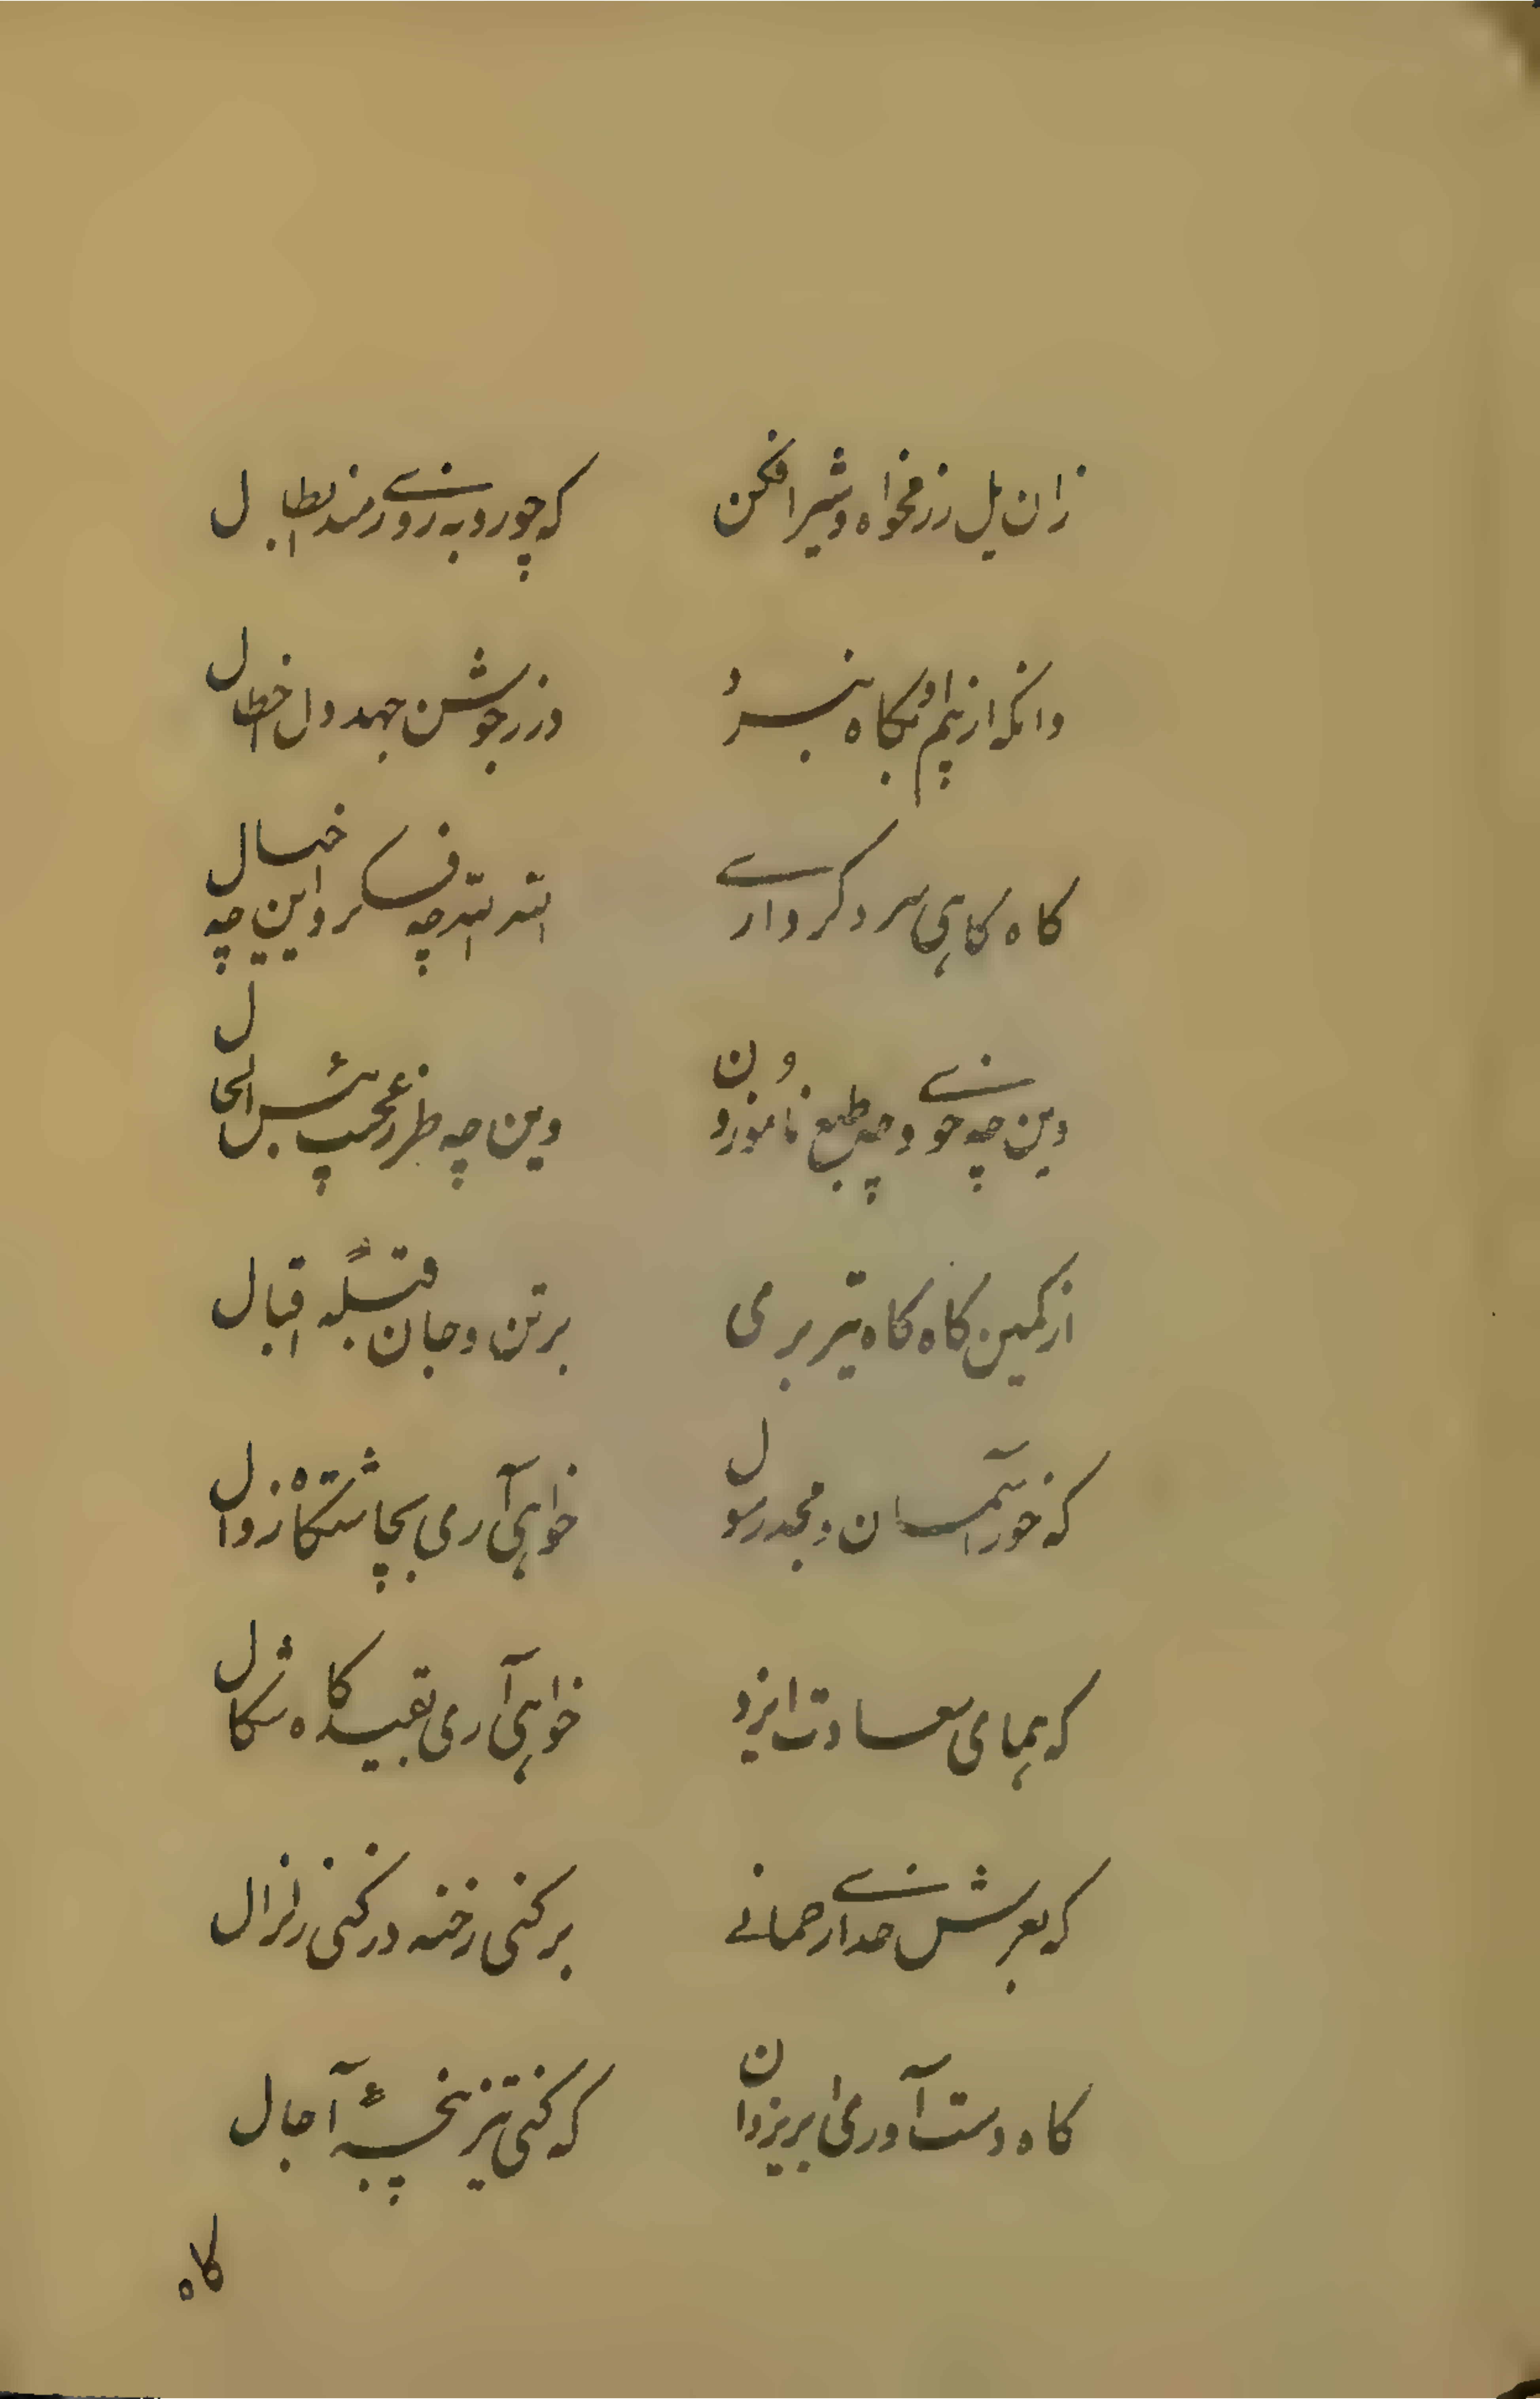 زان یل رزمخواه و شیر افکن
که چو روبه روی رمند ابطال
وانکه از بیم او بگاه نبرد
درز جوشن جهد دل ابطال
کاه کاهی سرد کرداری
الله الله چه فکر و این چه خیال
وین چه خوی و چه طبع ناموزون
وین چه طرز عجیب بئس الحال
از کمین کاه کاه تیر بری
بر تن و جان قبلهٔ اقبال
که خور آسمان و مجد رسول
خواهی آری بچاشتکاه زوال
که همای سعادت ایزد
خواهی آری بقیدکاه شکال
که بعرش خدا رحمانی
برکنی رخنه درکنی زلزال
کاه دست آوری بریزدان
که کنی تیز پنجهٔ آجال
کاه